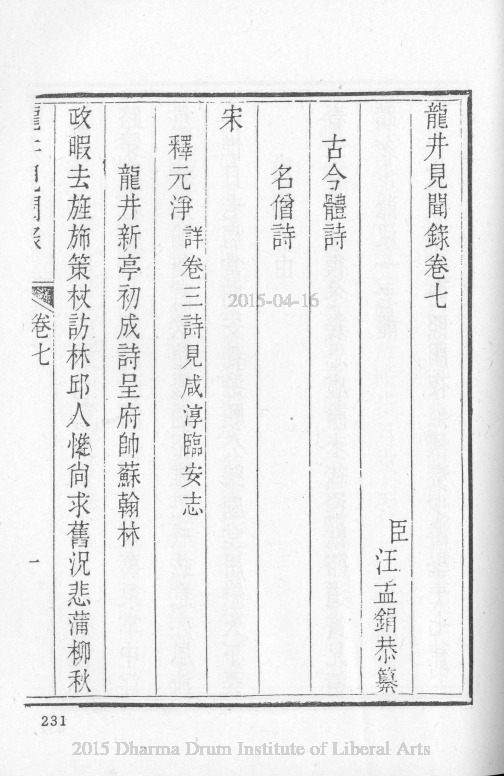 龍井見聞錄卷七
臣汪孟鋗恭纂
古今體詩
名僧詩
宋
釋元淨詳卷三詩見咸淳臨安志
龍井新亭初成詩呈府帥蘇翰林
政暇去旌旆策杖訪林邱人惟尙求舊況悲蒲柳秋
龍井見聞錄
卷七
一
231
2015-04-16
2015 Dharma Drum Institute of Liberal Arts